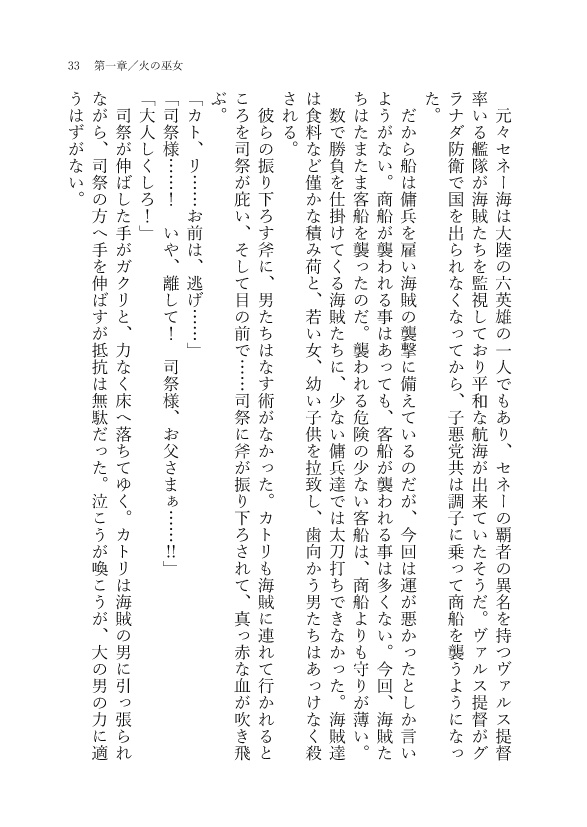 33　第一章／火の巫女
　元々セネー海は大陸の六英雄の一人でもあり、セネーの覇者の異名を持つヴァルス提督
率いる艦隊が海賊たちを監視しており平和な航海が出来ていたそうだ。ヴァルス提督がグ
ラナダ防衛で国を出られなくなってから、子悪党共は調子に乗って商船を襲うようになっ
た。
　だから船は傭兵を雇い海賊の襲撃に備えているのだが、今回は運が悪かったとしか言い
ようがない。商船が襲われる事はあっても、客船が襲われる事は多くない。今回、海賊た
ちはたまたま客船を襲ったのだ。襲われる危険の少ない客船は、商船よりも守りが薄い。
　数で勝負を仕掛けてくる海賊たちに、少ない傭兵達では太刀打ちできなかった。海賊達
は食料など僅かな積み荷と、若い女、幼い子供を拉致し、歯向かう男たちはあっけなく殺
される。
　彼らの振り下ろす斧に、男たちはなす術がなかった。カトリも海賊に連れて行かれると
ころを司祭が庇い、そして目の前で……司祭に斧が振り下ろされて、真っ赤な血が吹き飛
ぶ。
「カト、リ……お前は、逃げ……」
「司祭様……！　いや、離して！　司祭様、お父さまぁ……!!」
「大人しくしろ！」
　司祭が伸ばした手がガクリと、力なく床へ落ちてゆく。カトリは海賊の男に引っ張られ
ながら、司祭の方へ手を伸ばすが抵抗は無駄だった。泣こうが喚こうが、大の男の力に適
うはずがない。